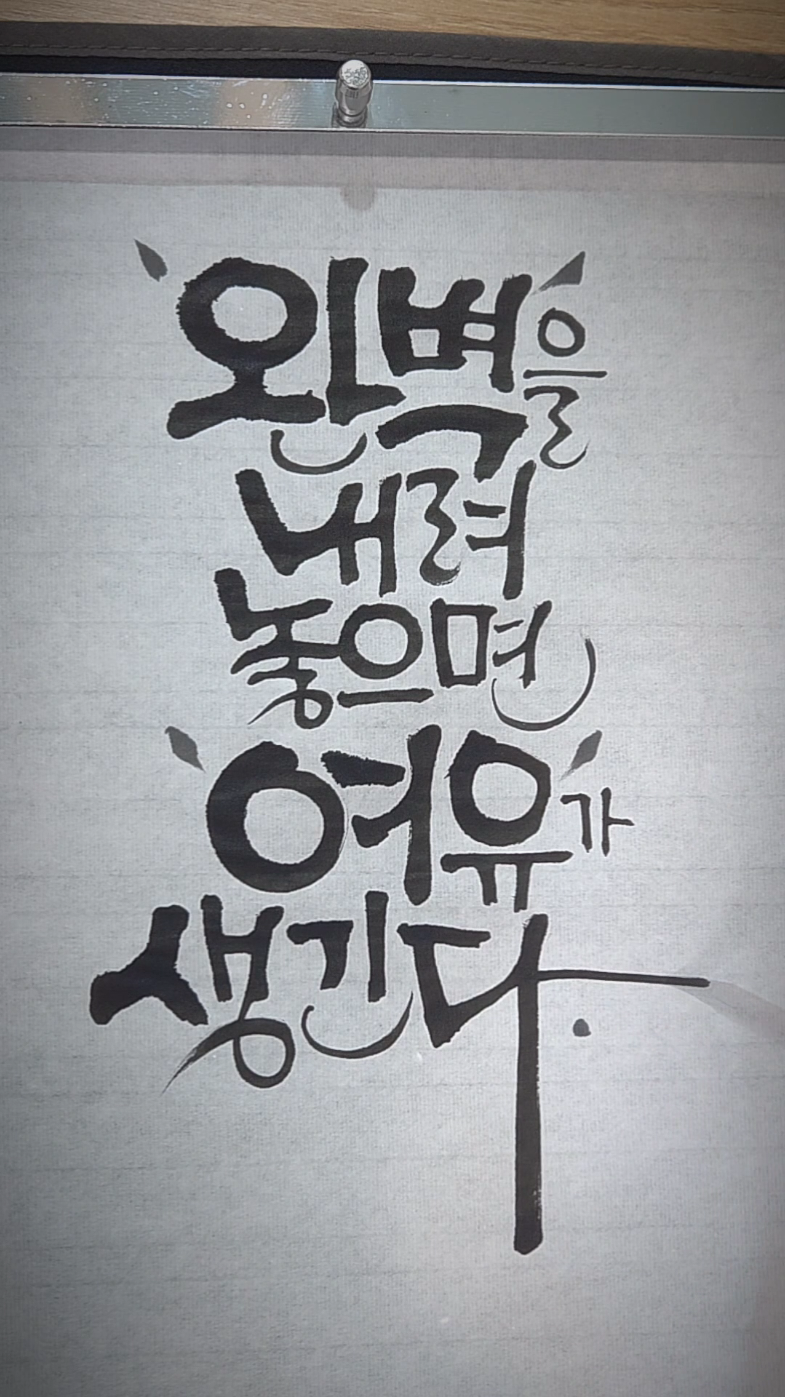 '완벽'을
내려
놓으면
'여유'가
생긴다.